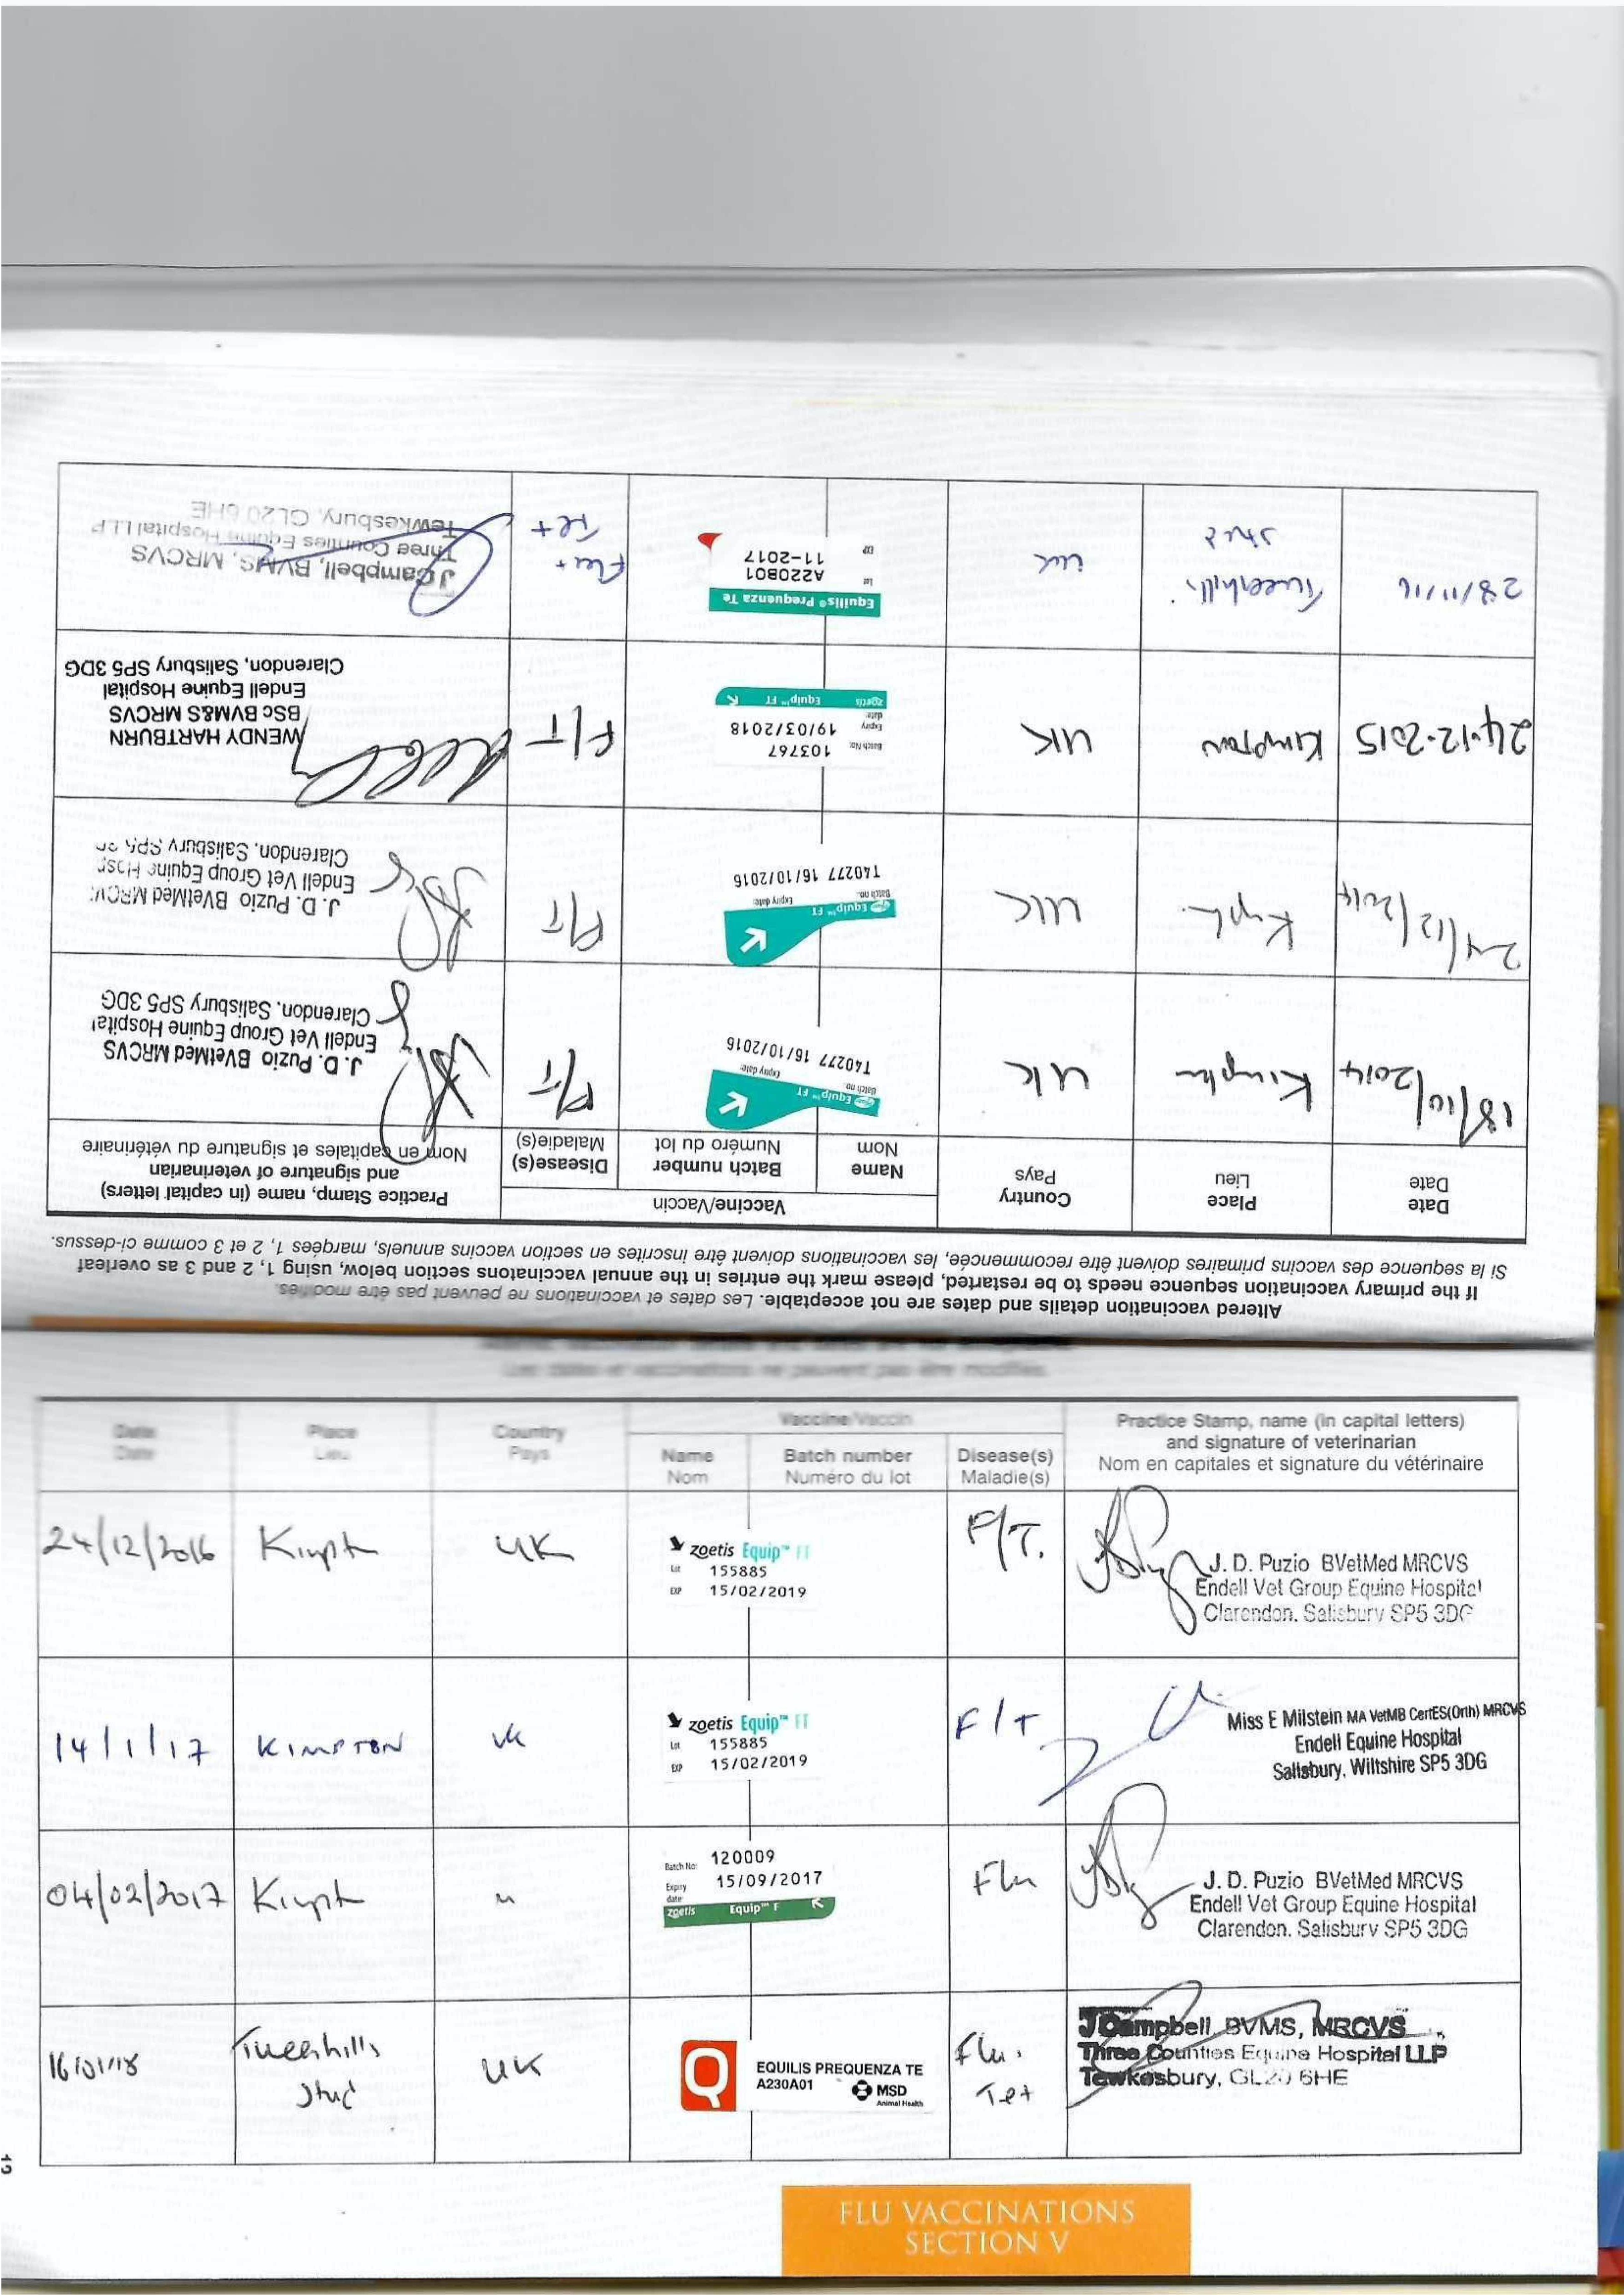 Altered vaccination details and dates are not acceptable. Les dates et vaccinations ne peuvent pas être modifiés.
If the primary vaccination sequence needs to be restarted, please mark the entries in the annual vaccinatons section below, using 1, 2 and 3 as overleaf
Si la sequence des vaccins primaires doivent être recommencée, les vaccinations doivent être inscrites en section vaccins annuels, marqées 1, 2 et 3 comme ci-dessus.
Date
Date
Place
Lieu
Country
Pays
Vaccine/Vaccin
Name
Nom
Batch number
Numéro du lot
Disease(s)
Maladie(s)
Practice Stamp, name (in capital letters)
and signature of veterinarian
Nom en capitales et signature du vétérinaire
18/10/2014
Kimpton
UK
Equip™ FT
Batch no:
Expiry date:
T40277 16/10/2016
F/T
J. D. Puzio BVetMed MRCVS
Endell Vet Group Equine Hospital
Clarendon. Salisbury SP5 3DG
24/12/2014
UK
Equip™ FT
Batch no:
Expiry date:
T40277 16/10/2016
F/T
J. D. Puzio BVetMed MRCVS
Endell Vet Group Equine Hosp
Clarendon. Salisbury SP5
24.12.2015
Kimpton
UK
Batch No: 103767
Expiry date: 19/03/2018
zoetis Equip™ FT
F/T
WENDY HARTBURN
BSc BVM&S MRCVS
Endell Equine Hospital
Clarendon, Salisbury SP5 3DG
28/11/16
Tweenhills
Stud
UK
Equilis® Prequenza Te
Lot A220B01
EXP 11-2017
Flu +
Tet
J Campbell, BVMS, MRCVS
Three Counties Equine Hospital LLP
Tewkesbury, GL20 6HE
Les dates et vaccinations ne peuvent pas être modifiés.
Date
Date
Place
Lieu
Country
Pays
Vaccine/Vaccin
Name
Nom
Batch number
Numéro du lot
Disease(s)
Maladie(s)
Practice Stamp, name (in capital letters)
and signature of veterinarian
Nom en capitales et signature du vétérinaire
24/12/2016
Kimpt
UK
zoetis Equip™ FT
Lot 155885
EXP 15/02/2019
F/T.
J. D. Puzio BVetMed MRCVS
Endell Vet Group Equine Hospital
Clarendon. Salisbury SP5 3DG
14/1/17
KIMPTON
UK
zoetis Equip™ FT
Lot 155885
EXP 15/02/2019
F/T
Miss E Milstein MA VetMB CertES(Orth) MRCVS
Endell Equine Hospital
Salisbury, Wiltshire SP5 3DG
04/02/2017
Kimpt
"
Batch No: 120009
Expiry date: 15/09/2017
zoetis Equip™ F
Flu
J. D. Puzio BVetMed MRCVS
Endell Vet Group Equine Hospital
Clarendon. Salisbury SP5 3DG
16/01/18
Tweenhills
Stud
UK
EQUILIS PREQUENZA TE
A230A01
MSD
Animal Health
Flu.
Tet
J Campbell, BVMS, MRCVS
Three Counties Equine Hospital LLP
Tewkesbury, GL20 6HE
FLU VACCINATIONS
SECTION V